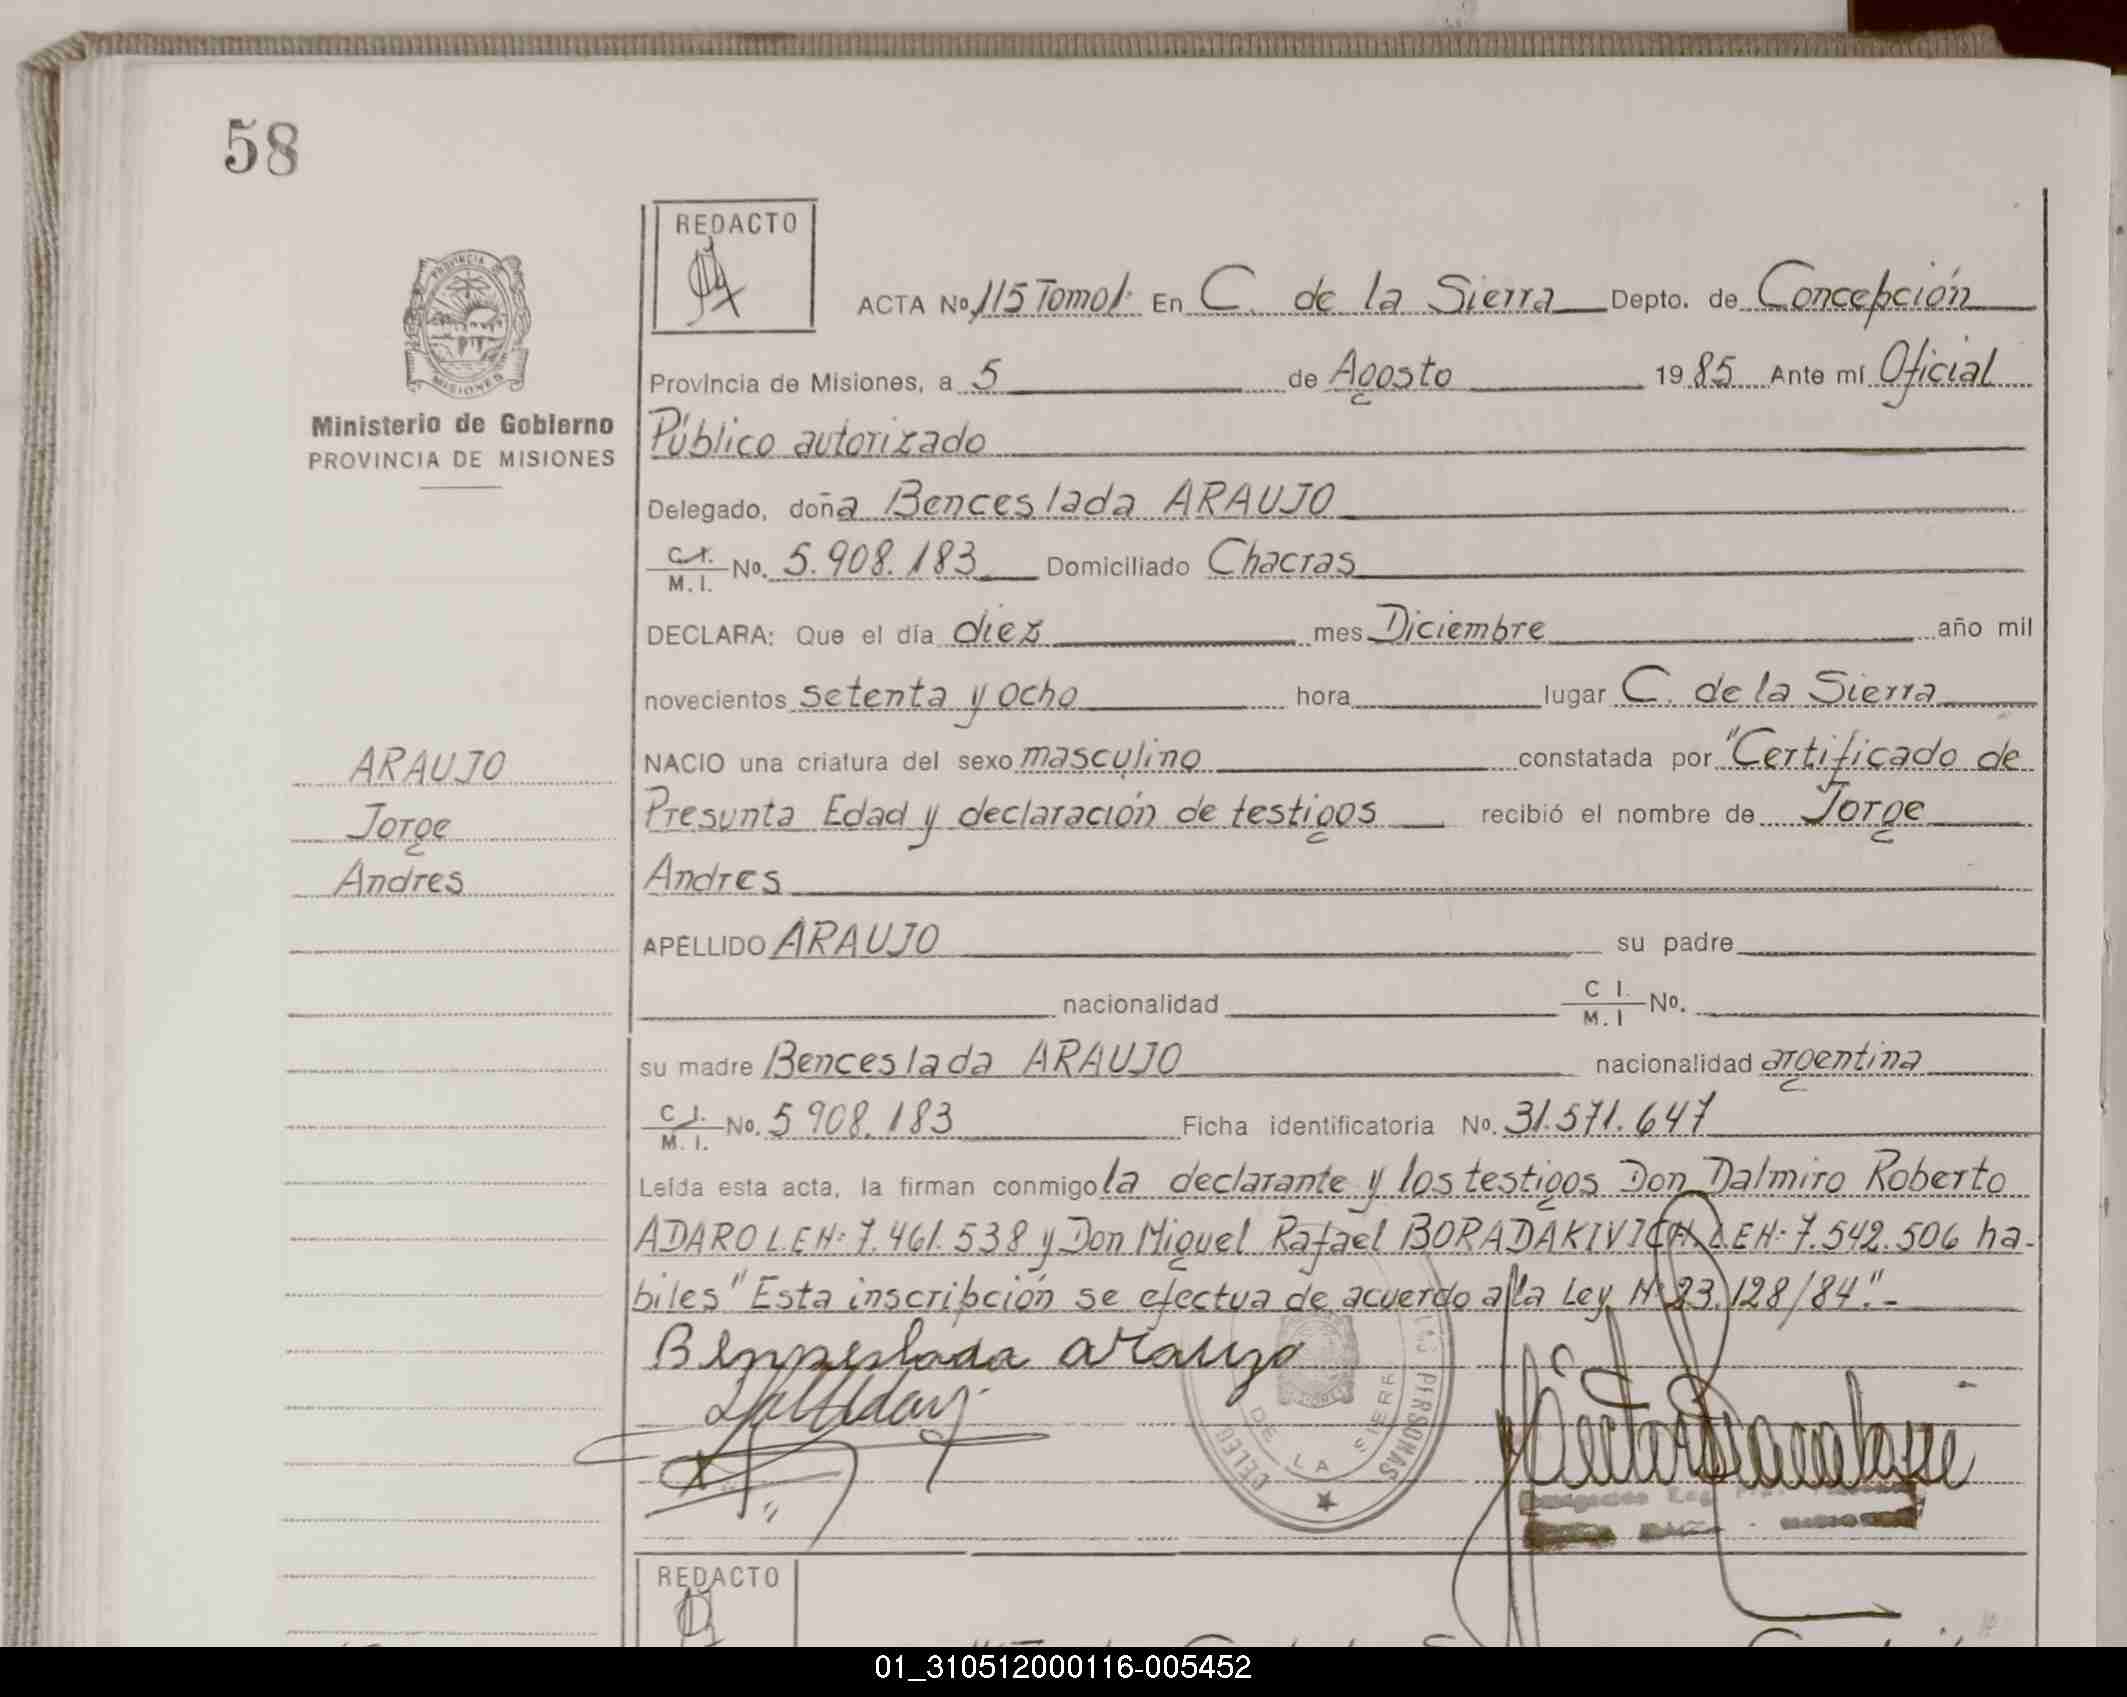 58
REDACTO
PROVINCIA DE
MISIONES
Ministerio de Gobierno
PROVINCIA DE MISIONES
ACTA Nº 115 Tomo I. En C. de la Sierra Depto. de Concepción
Provincia de Misiones, a 5 de Agosto 1985 Ante mí Oficial
Público autorizado
Delegado, doña Benceslada ARAUJO
C.I. / M.I. Nº. 5.908.183 Domiciliado Chacras
DECLARA: Que el día diez mes Diciembre año mil
novecientos setenta y ocho hora lugar C. de la Sierra
NACIO una criatura del sexo masculino constatada por "Certificado de
Presunta Edad y declaración de testigos recibió el nombre de Jorge
Andres
APELLIDO ARAUJO su padre
nacionalidad C I. / M. I Nº.
su madre Benceslada ARAUJO nacionalidad argentina
C.I. / M.I. Nº. 5 908.183 Ficha identificatoria Nº. 31.571.647
Leída esta acta, la firman conmigo la declarante y los testigos Don Dalmiro Roberto
ADARO L.E Nº: 7.461.538 y Don Miguel Rafael BORADAKIVICH, L.E Nº: 7.542.506 ha-
biles "Esta inscripción se efectua de acuerdo a la Ley Nº 23.128/84".-
ARAUJO
Jorge
Andres
araujo
PERSONAS
DE LA SIERR
REDACTO
01_310512000116-005452